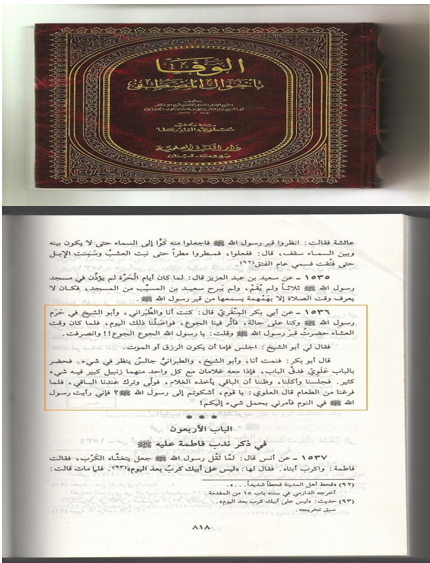 الوفا
بأحوال المصطفى
دار الكتب العلمية
بيروت - لبنان
عائشة فقالت: انظروا قبر رسول الله ﷺ فاجعلوا منه كُوًّا إلى السماء حتى لا يكون بينه
وبين السماء سقف، قال: ففعلوا، فمطروا مطراً حتى نبت العشب وسمنت الإبل
حتى فتقت فسمي عام الفتق(٩٢).
١٥٣٥ - عن سعيد بن عبد العزيز قال: لما كان أيام الحَرَّة لم يؤذّن في مسجد
رسول الله ﷺ ثلاثاً ولم يُقَمْ، ولم يبرح سعيد بن المسيّب من المسجد، فكان لا
يعرف وقت الصلاة إلا بهمهمة يسمعها من قبر رسول الله ﷺ.
١٥٣٦ - عن أبي بكر المِنْقري قال: كنت أنا والطَبَراني، وأبو الشيخ في حَرَم
رسول الله ﷺ وكنا على حالة، فأثَّر فينا الجوع، فواصَلْنا ذلك اليوم، فلما كان وقت
العشاء حضرتُ قبرَ رسول الله ﷺ وقلت: يا رسول الله الجوع الجوع!! وانصرفت.
فقال لي أبو الشيخ: اجلس فإما أن يكون الرزق أو الموت.
قال أبو بكر: فنمت أنا، وأبو الشيخ، والطبراني جالسٌ ينظر في شيء. فحضر
بالباب عَلَويّ فدقّ الباب، فإذا معه غلامان مع كل واحد منهما زنبيل كبير فيه شيء
كثير. فجلسنا وأكلنا، وظننا أن الباقي يأخذه الغلام، فولّى وترك عندنا الباقي، فلما
فرغنا من الطعام قال العلوي: يا قوم، أشكوتم إلى رسول الله ﷺ؟ فإني رأيت رسول
الله ﷺ في النوم فأمرني بحمل شيء إليكم!
* * *
الباب الأربعون
في ذكر ندب فاطمة عليه ﷺ
١٥٣٧ - عن أنس قال: لمّا ثقُل رسول الله ﷺ جعل يتغشّاه الكَرْب، فقالت
فاطمة: واكرب أبتاه. فقال لها: «ليس على أبيك كربٌ بعد اليوم»(٩٣). فلما مات قالت:
(٩٢) «قحط أهل المدينة قحطاً شديداً...».
أخرجه الدارمي في سننه باب ١٥ من المقدمة.
(٩٣) حديث: «ليس على أبيك كرب بعد اليوم».
سبق تخريجه.
٨١٨